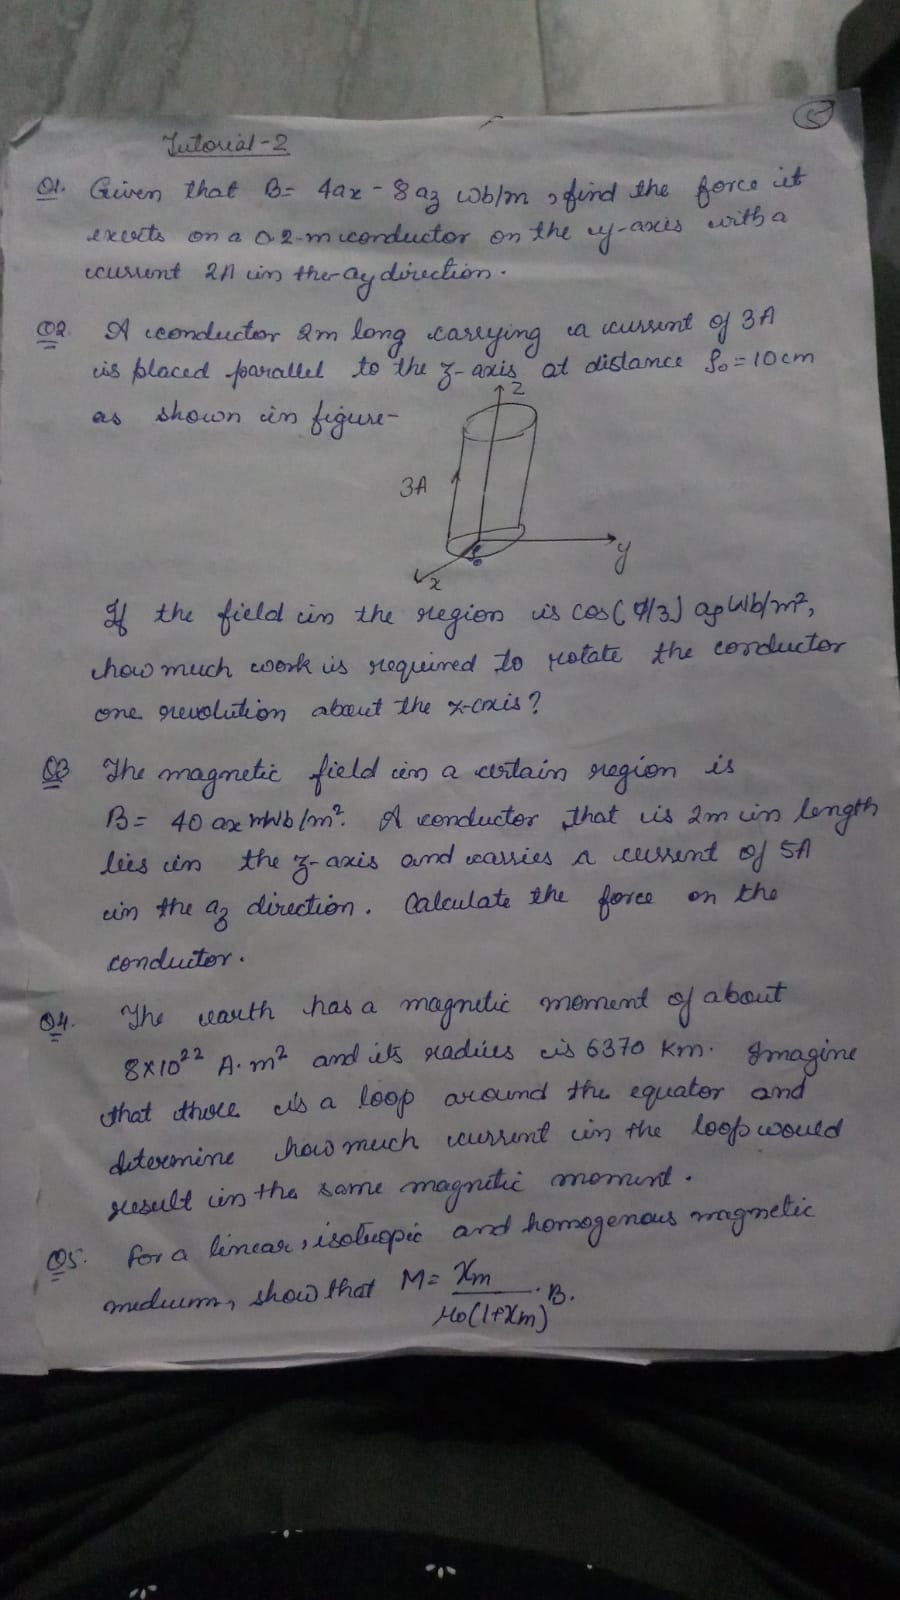 5
Tutorial-2
Q1. Given that B= 4ax - 8az wb/m, find the force it
exerts on a 0.2-m conductor on the y-axis with a
current 2A in the-ay direction.
Q2 A conductor 2m long carrying a current of 3A
is placed parallel to the z-axis at distance ρ₀=10cm
as shown in figure-
z
3A
ρ₀
y
x
If the field in the region is cos(φ/3) aρ Wb/m²,
how much work is required to rotate the conductor
one revolution about the z-axis?
Q3 The magnetic field in a certain region is
B= 40 ax mWb/m². A conductor that is 2m in length
lies in the z-axis and carries a current of 5A
in the az direction. Calculate the force on the
conductor.
Q4. The earth has a magnetic moment of about
8×10²² A·m² and its radius is 6370 km. Imagine
that there is a loop around the equator and
determine how much current in the loop would
result in the same magnetic moment.
Q5. For a linear, isotropic and homogenous magnetic
medium, show that M= χm/μ₀(1+χm) · B.